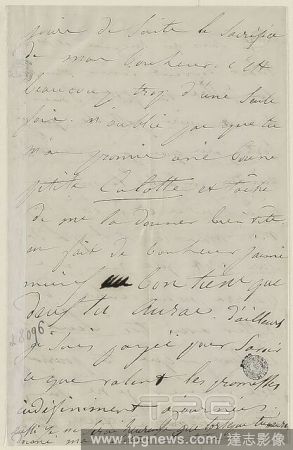 jours de suite le sacrifice
de mon bonheur. C'est
beaucoup trop d'une seule
fois. N'oublie pas que tu
m'a promis une bonne
petite Culotte et tâche
de me la donner bien vite
en fait de bonheur j'aime
mieux un bon tiens que
deux tu auras. D'ailleurs
je suis payée pour savoir
ce que valent les promesses
indéfiniment ajournées
28096
TPG
www.tpgnews.com / 達志影像